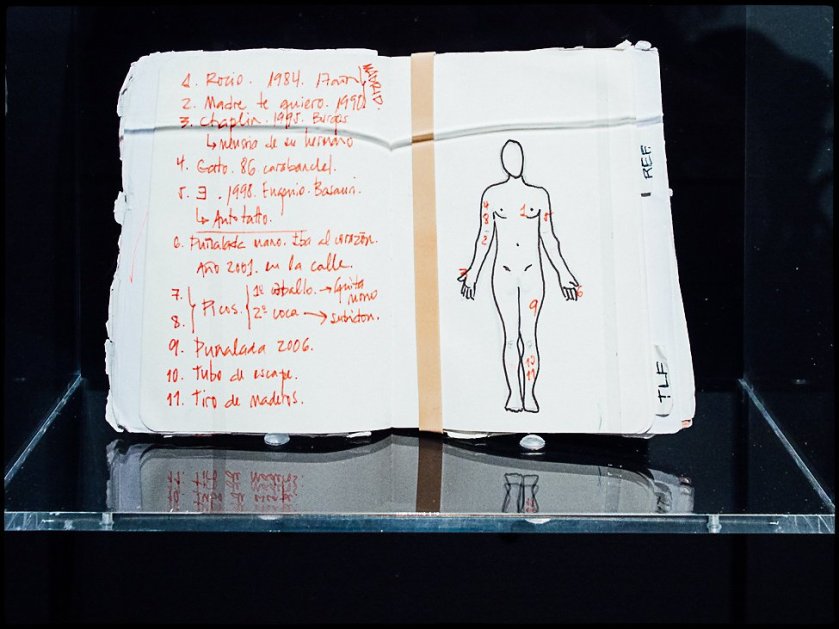 1. Rocío. 1984. 17 años
MADRID.
2. Madre te quiero. 1990
3. Chaplin. 1995. Burgos
↳ mismo de su hermano
4. Gato. 86. carabanchel.
5. Ǝ. 1998. Eugenio. Basauri.
↳ Autotatto.
6. Puñalada mano. Iba al corazón.
Año 2001. en la calle.
7.
8.
Picos.
1º caballo. → Quita mono
2º coca → subidon.
9. Puñalada 2006.
10. Tubo de escape.
11. Tiro de maderos.
4
8
2
1
5
7
6
9
10
11
REF.
TLF